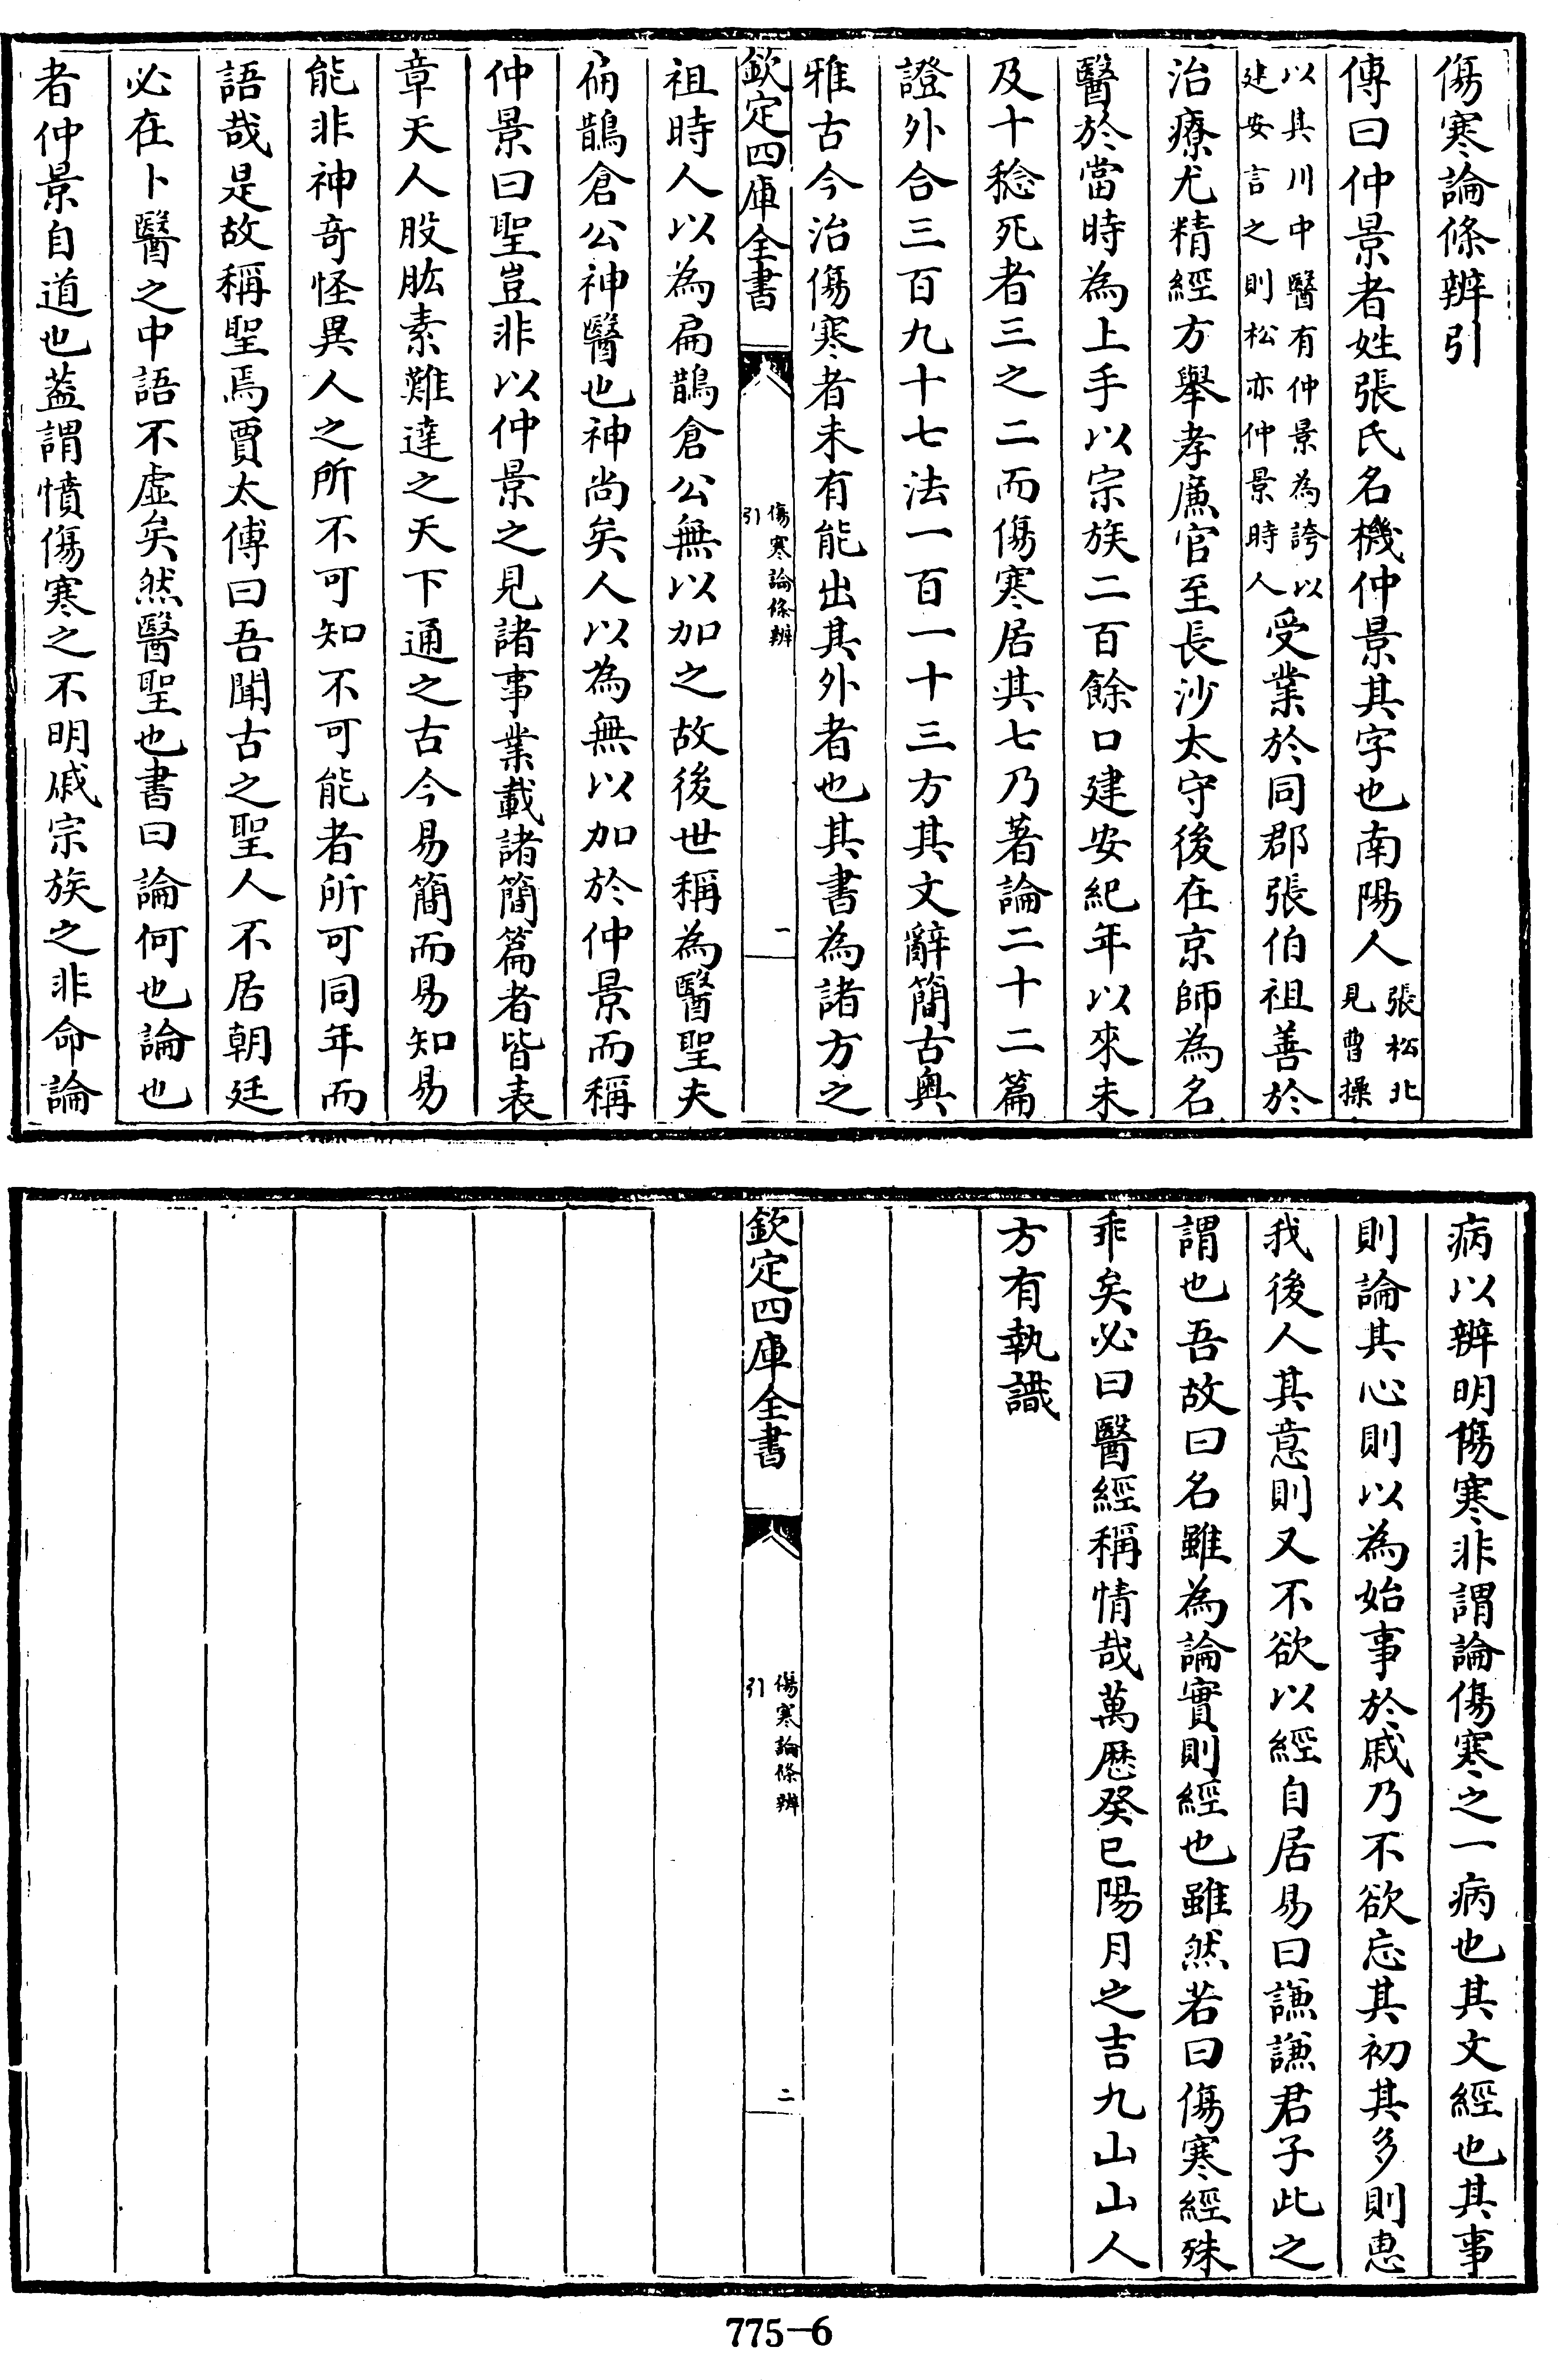 傷寒論條辨引
傳曰仲景者姓張氏名機仲景其字也南陽人張松北見曹操
以其川中醫有仲景為誇以建安言之則松亦仲景時人受業於同郡張伯祖善於
治療尤精經方舉孝廉官至長沙太守後在京師為名
醫於當時為上手以宗族二百餘口建安紀年以來未
及十稔死者三之二而傷寒居其七乃著論二十二篇
證外合三百九十七法一百一十三方其文辭簡古奧
雅古今治傷寒者未有能出其外者也其書為諸方之
欽定四庫全書 傷寒論條辨引 一
祖時人以為扁鵲倉公無以加之故後世稱為醫聖夫
扁鵲倉公神醫也神尚矣人以為無以加於仲景而稱
仲景曰聖豈非以仲景之見諸事業載諸簡篇者皆表
章天人股肱素難達之天下通之古今易簡而易知易
能非神奇怪異人之所不可知不可能者所可同年而
語哉是故稱聖焉賈太傅曰吾聞古之聖人不居朝廷
必在卜醫之中語不虛矣然醫聖也書曰論何也論也
者仲景自道也葢謂憤傷寒之不明戚宗族之非命論
病以辨明傷寒非謂論傷寒之一病也其文經也其事
則論其心則以為始事於戚乃不欲忘其初其多則惠
我後人其意則又不欲以經自居易曰謙謙君子此之
謂也吾故曰名雖為論實則經也雖然若曰傷寒經殊
乖矣必曰醫經稱情哉萬歷癸巳陽月之吉九山山人
方有執識
欽定四庫全書 傷寒論條辨引 二
775-6